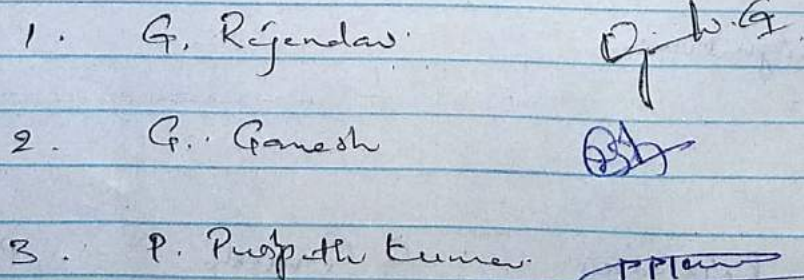 1. G. Rajendav.
2. G. Ganesh
3. P. Puspath Kumar.